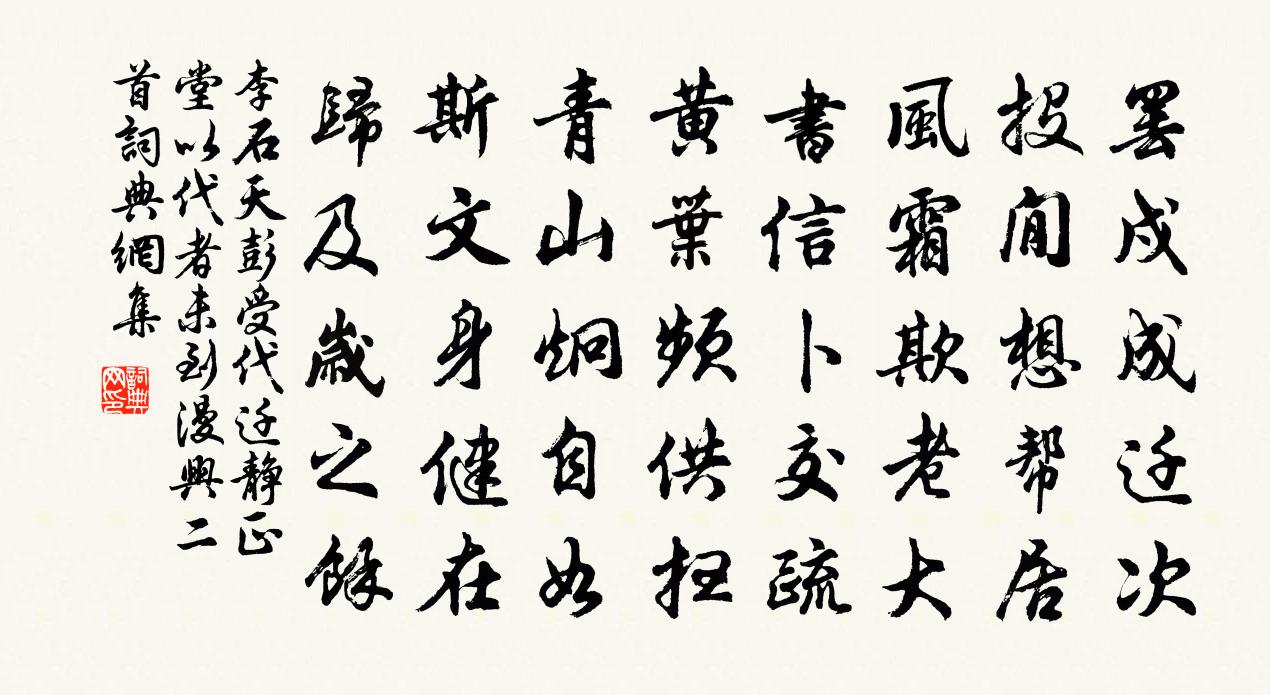 罢戍成迁次
投閒想帮居
風霜欺老大
書信卜交疏
黄葉頻供掃
青山炯自如
斯文身健在
歸及歲之餘
李石天彭受代迁静正
堂以代者未到漫興二
首詞典網集
詞典網印